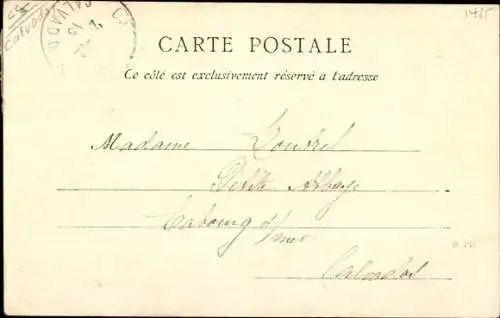 Calvados
CALVADOS
1425
CARTE POSTALE
Ce côté est exclusivement réservé à l'adresse
Madame
Petite Abbaye
Cabourg s/mer
Calvados